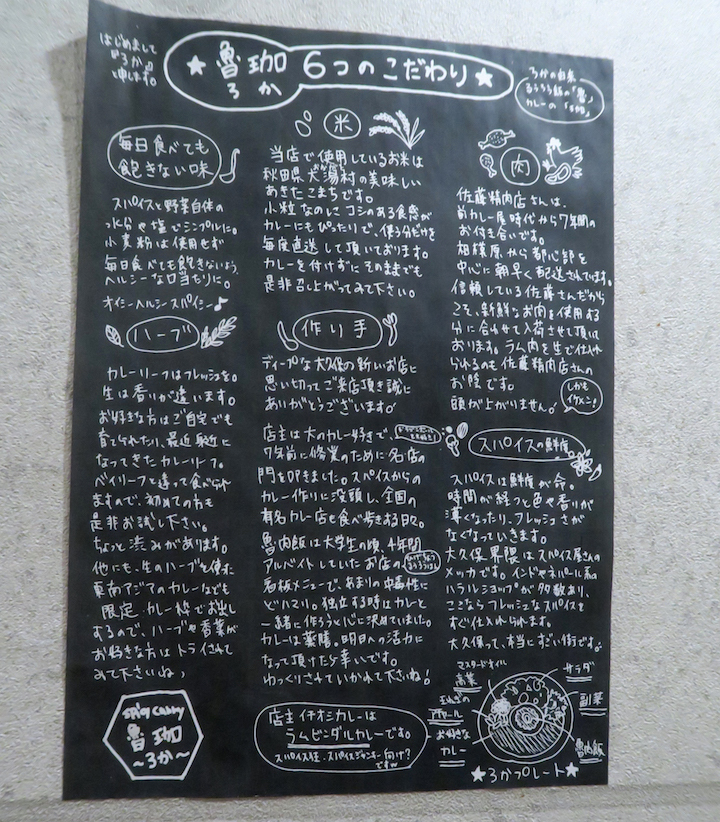 はじめまして
『ろか』と
申します。
★ 魯珈 6つのこだわり ★
ろか
ろかの由来
るうろう飯の「魯」
カレーの「珈」
毎日食べても
飽きない味
スパイスと野菜自体の
水分や塩でシンプルに。
小麦粉は使用せず
毎日食べても飽きないよう
ヘルシーな口当たりに。
オイシーヘルシースパイシー♪
米
当店で使用しているお米は
秋田県大潟村の美味しい
あきたこまちです。
小粒なのにコシのある食感が
カレーにもぴったりで、使う分だけを
毎度直送して頂いております。
カレーを付けずにそのままでも
是非召し上がってみて下さい。
肉
佐藤精肉店さんは、
前カレー屋時代から7年間の
お付き合いです。
相模原から都心部を
中心に朝早く配送されています。
信頼している佐藤さんだから
こそ、新鮮なお肉を使用する
分に合わせて入荷させて頂いて
おります。ラム肉を生で仕入れ
られるのも佐藤精肉店さんの
お陰です。
頭が上がりません。
しかも
イケメン!
ハーブ
カレーリーフはフレッシュを。
生は香りが違います。
お好きな方はご自宅でも
育てられたり、最近身近に
なってきたカレーリーフ。
ベイリーフと違って食べられ
ますので、初めての方も
是非お試し下さい。
ちょっと渋みがあります。
他にも、生のハーブを使った
東南アジアのカレーなども
限定カレー枠でお出し
するので、ハーブや香菜が
お好きな方はトライされて
みて下さいね♪
作り手
ディープな大久保の新しいお店に
思い切ってご来店頂き誠に
ありがとうございます!
店主は大のカレー好きで、
7年前に修業のために名店の
門を叩きました。スパイスからの
カレー作りに没頭し、全国の
有名カレー店を食べ歩きする日々。
魯肉飯は大学生の頃、4年間
アルバイトしていたお店の
看板メニューで、あまりの中毒性に
ドハマリ。独立する時はカレーと
一緒に作ろうと心に決めていました。
カレーは薬膳。明日への活力に
なって頂けたら幸いです。
ゆっくりされていかれて下さいね!
スパイスの鮮度
スパイスは鮮度が命。
時間が経つと色や香りが
薄くなったり、フレッシュさが
なくなっていきます。
大久保界隈はスパイス屋さんの
メッカです。インドやネパール系の
ハラルショップが多数あり、
ここならフレッシュなスパイスを
すぐ仕入れられます。
大久保って、本当にすごい街です。
spicy curry
魯珈
~ろか~
店主イチオシカレーは
ラムビンダルカレーです。
スパイス狂・スパイスジャンキー向け?
ですw
マスタードオイル
高菜
玉ねぎの
アチャール
お好きな
カレー
サラダ
副菜
魯肉飯
★ろかプレート★